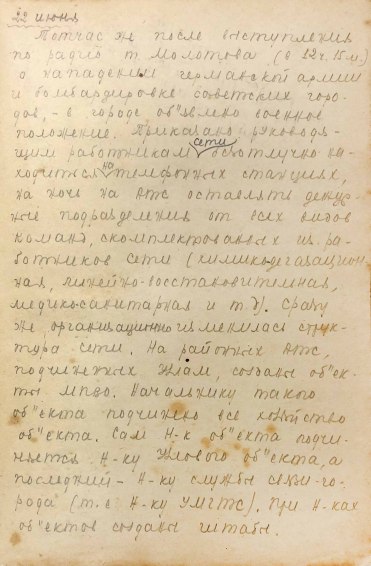 22 июня
Тотчас же после выступления
по радио т. Молотова (в 12ч. 15м.)
о нападении германской армии
и бомбардировке советских горо-
дов, - в городе об"явлено военное
положение. Приказано руководя-
щим работникам сети безотлучно на-
ходиться на телефонных станциях,
на ночь на АТС оставлять дежур-
ные подразделения от всех видов
команд, скомплектованых из ра-
ботников сети (химикодегазацион-
ная, линейно-восстановительная,
медикосанитарная и т.д). Сразу
же организационно изменилась струк-
тура сети. На районных АТС,
подчиненных узлам, созданы об"ек-
ты МПВО. Начальнику такого
об"екта подчинено все хозяйство
об"екта. Сам Н-к об"екта подчи-
няется Н-ку узлового об"екта, а
последний - Н-ку службы связи го-
рода (т.е Н-ку УМГТС). При Н-ках
об"ектов созданы штабы.